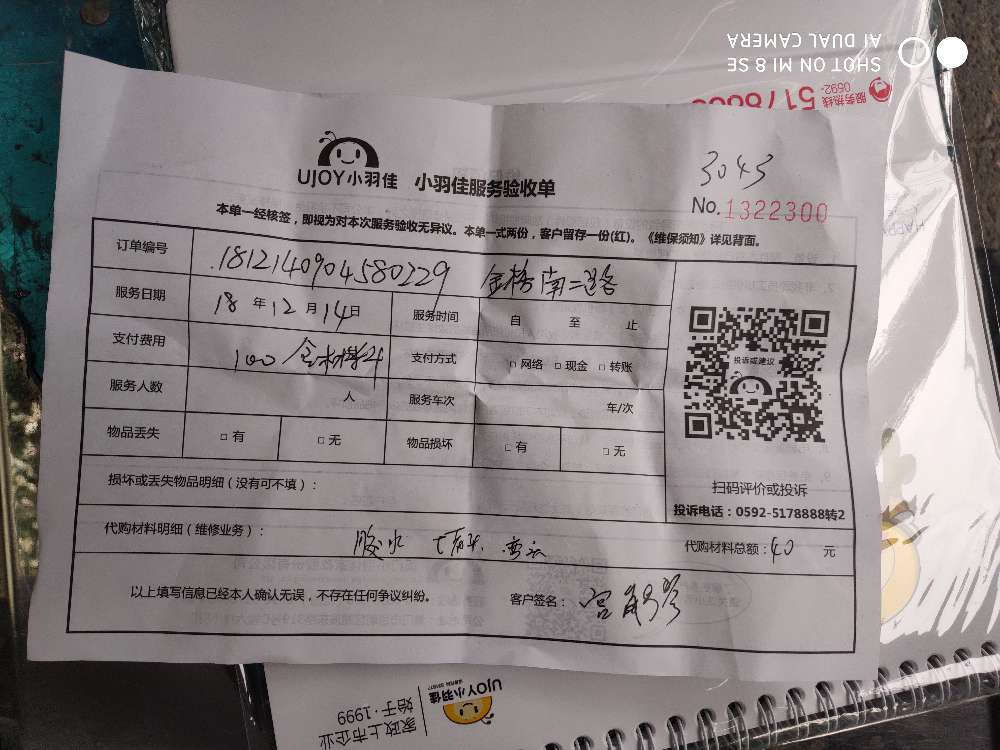 SHOT ON MI 8 SE
AI DUAL CAMERA
服务热线
0592-
UJOY小羽佳 小羽佳服务验收单
3043
No.1322300
本单一经核签，即视为对本次服务验收无异议。本单一式两份，客户留存一份(红)。《维保须知》详见背面。
订单编号 金桥南二路
服务日期 18年12月14日 服务时间 自 至 止
支付费用 100 支付方式 □ 网络 □ 现金 □ 转账
服务人数 人 服务车次 车/次
物品丢失 □ 有 □ 无 物品损坏 □ 有 □ 无
投诉或建议
扫码评价或投诉
投诉电话：0592-5178888转2
损坏或丢失物品明细（没有可不填）：
代购材料明细（维修业务）： 胶水 代购材料总额：40 元
以上填写信息已经本人确认无误，不存在任何争议纠纷。 客户签名：
UJOY小羽佳
家政上市企业
始于·1999